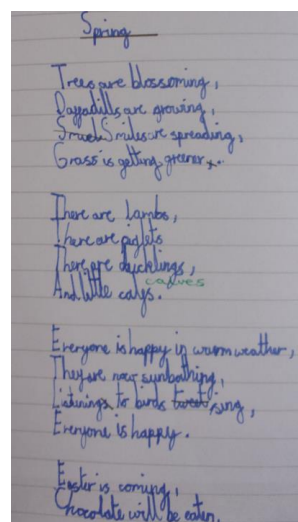 Spring
Trees are blossoming,
Daffadills are growing,
Smiles are spreading,
Grass is getting greener.
There are Lambs,
There are piglets
There are ducklings,
calves
And little calfs.
Everyone is happy in warm weather,
They are now sunbathing,
Listenings to birds tweet sing,
Everyone is happy.
Easter is coming,
Chocolate will be eaten.